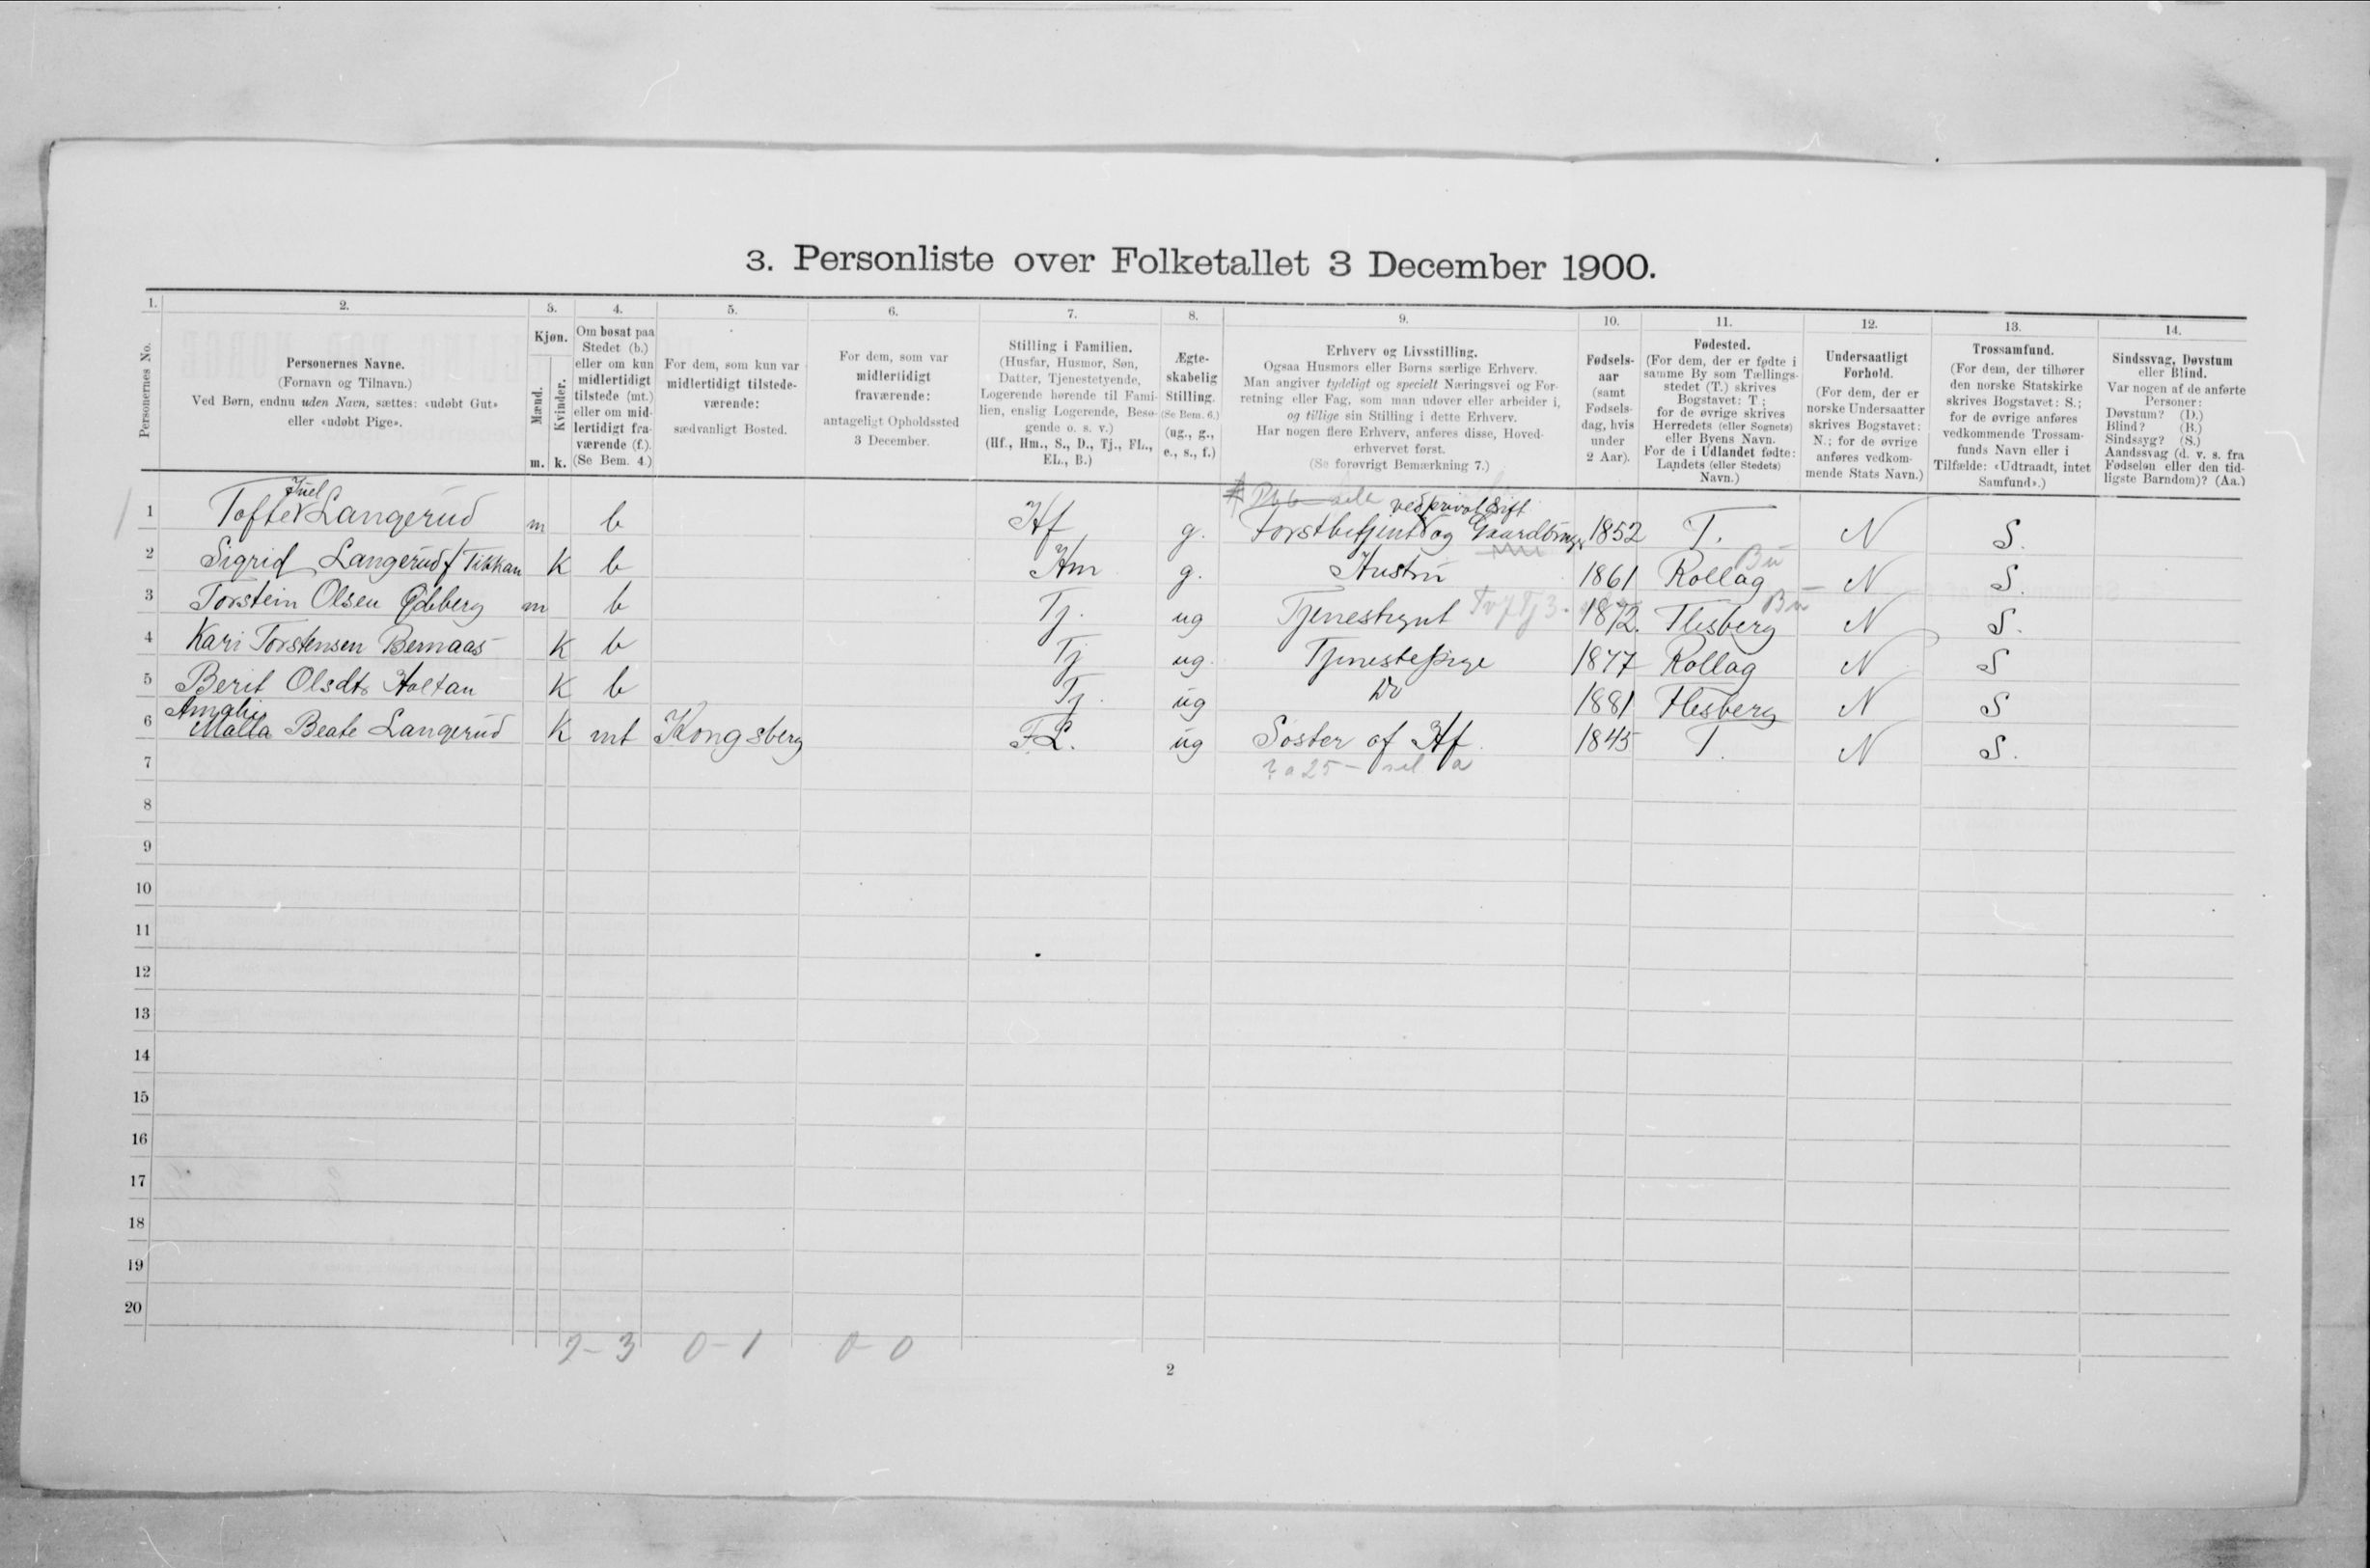 3. Personliste over Folketallet 3 December 1900.
1. 2. 3. 4. 5. 6. 7. 8. 9. 10. 11. 12. 13. 14.
Personernes No.
Personernes Navne.
(Fornavn og Tilnavn.)
Ved Børn, endnu uden Navn, sættes: «udøbt Gut»
eller «udøbt Pige».
Kjøn.
Mænd.
Kvinder.
m. k.
Om bosat paa
Stedet (b.)
eller om kun
midlertidigt
tilstede (mt.)
eller om mid-
lertidigt fra-
værende (f.).
(Se Bem. 4.)
For dem, som kun var
midlertidigt tilstede-
værende:
sædvanligt Bosted.
For dem, som var
midlertidigt
fraværende:
antageligt Opholdssted
3 December.
Stilling i Familien.
(Husfar, Husmor, Søn,
Datter, Tjenestetyende,
Logerende hørende til Fami-
lien, enslig Logerende, Besø-
gende o. s. v.)
(Hf., Hm., S., D., Tj., FL.,
EL., B.)
Ægte-
skabelig
Stilling.
(Se Bem. 6.)
(ug., g.,
e., s., f.)
Erhverv og Livsstilling.
Ogsaa Husmors eller Børns særlige Erhverv.
Man angiver tydeligt og specielt Næringsvei og For-
retning eller Fag, som man udøver eller arbeider i,
og tillige sin Stilling i dette Erhverv.
Har nogen flere Erhverv, anføres disse, Hoved-
erhvervet først.
(Se forøvrigt Bemærkning 7.)
Fødsels-
aar
(samt
Fødsels-
dag, hvis
under
2 Aar).
Fødested.
(For dem, der er fødte i
samme By som Tællings-
stedet (T.) skrives
Bogstavet: T.;
for de øvrige skrives
Herredets (eller Sognets)
eller Byens Navn.
For de i Udlandet fødte:
Landets (eller Stedets)
Navn.)
Undersaatligt
Forhold.
(For dem, der er
norske Undersaatter
skrives Bogstavet:
N.; for de øvrige
anføres vedkom-
mende Stats Navn.)
Trossamfund.
(For dem, der tilhører
den norske Statskirke
skrives Bogstavet: S.;
for de øvrige anføres
vedkommende Trossam-
funds Navn eller i
Tilfælde: «Udtraadt, intet
Samfund».)
Sindssvag, Døvstum
eller Blind.
Var nogen af de anførte
Personer:
Døvstum? (D.)
Blind? (B.)
Sindssyg? (S.)
Aandssvag (d. v. s. fra
Fødselen eller den tid-
ligste Barndom)? (Aa.)
Juel ved privat Drift
1 Tofte Langerud m b Hf g. Forstbetjent og Gaardbruger 1852 T. N S.
2 Sigrid Langerud f Tikkan K b Hm g. Hustru 1861 Rollag Bu N S.
3 Torstein Olsen m b Tj. ug Tjenestegut 1872. Flesberg Bu N S.
4 Kari Torstensen Bernaas K b Tj ug. Tjenestepige 1877 Rollag N S
5 Berit Olsdtr Holtan K b Tj. ug Do 1881 Flesberg N S
Amalie
6 Malla Beate Langerud K mt Kongsberg F.L. ug Søster af Hf. 1845 T. N S.
7
8
9
10
11
12
13
14
15
16
17
18
19
20
2-3 0-1 0-0
2